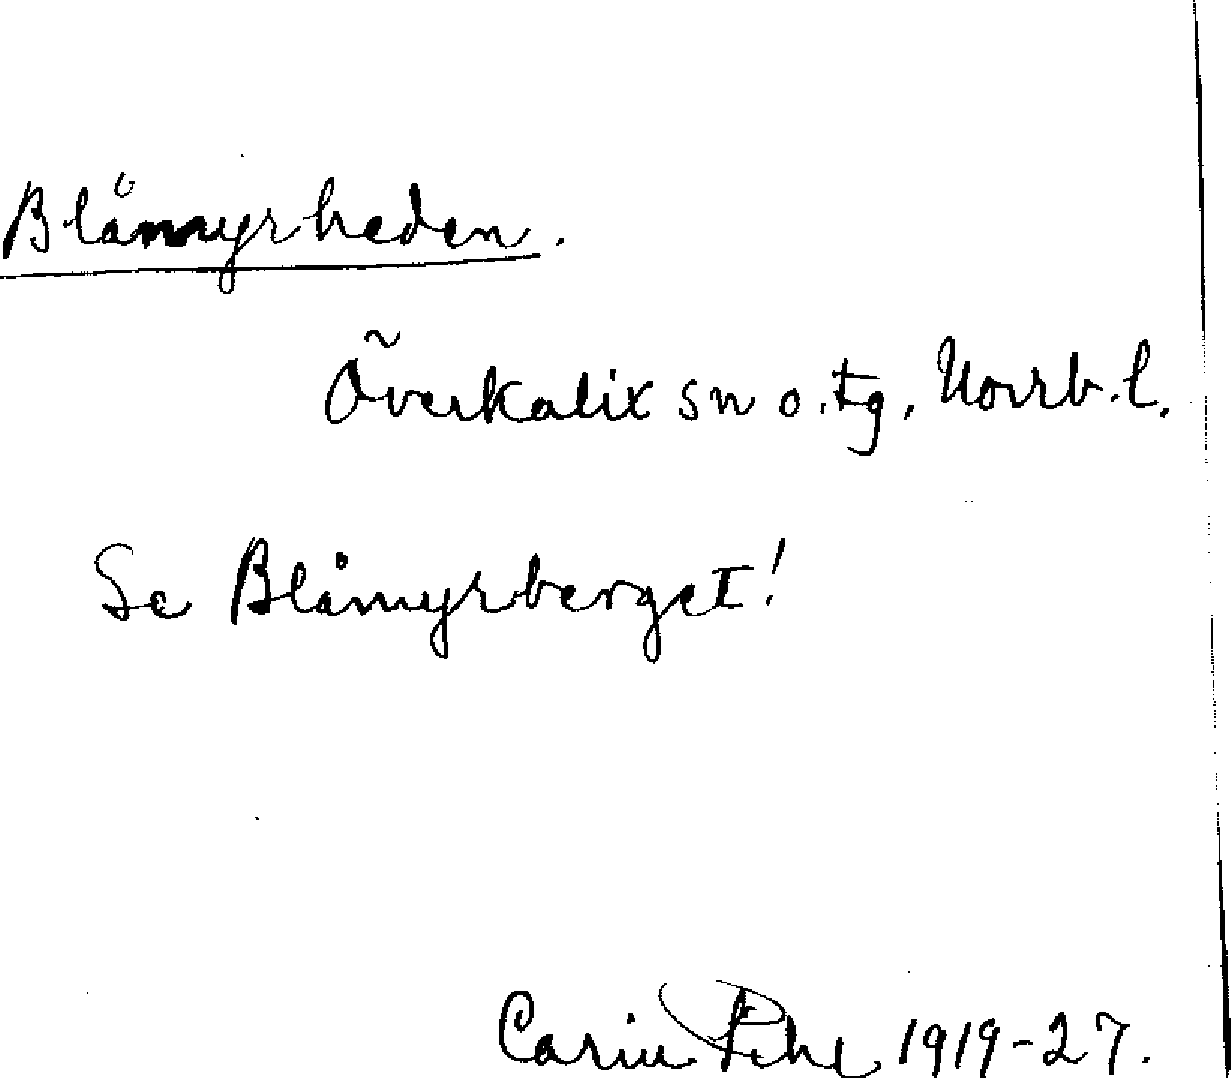 Blåmyrheden.
Överkalix sn o. tg, Norrb. l.
Se Blåmyrberget!
Carin Pihl 1919-27.